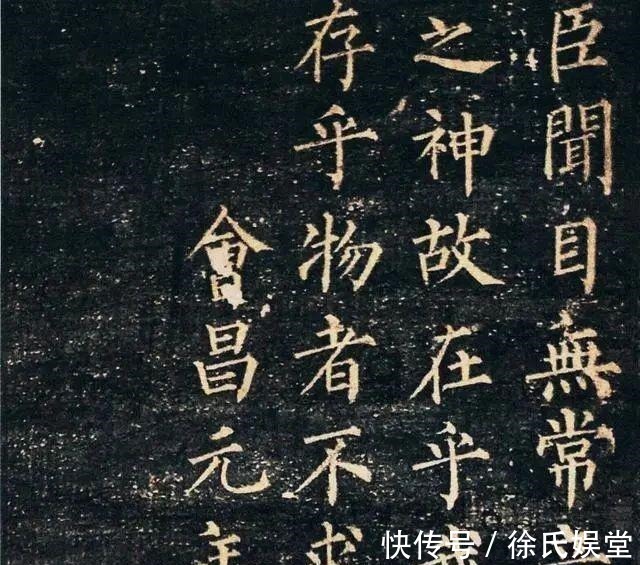 臣聞目無常
之神故在乎
存乎物者不求
會昌元年
快传号/徐氏娱堂